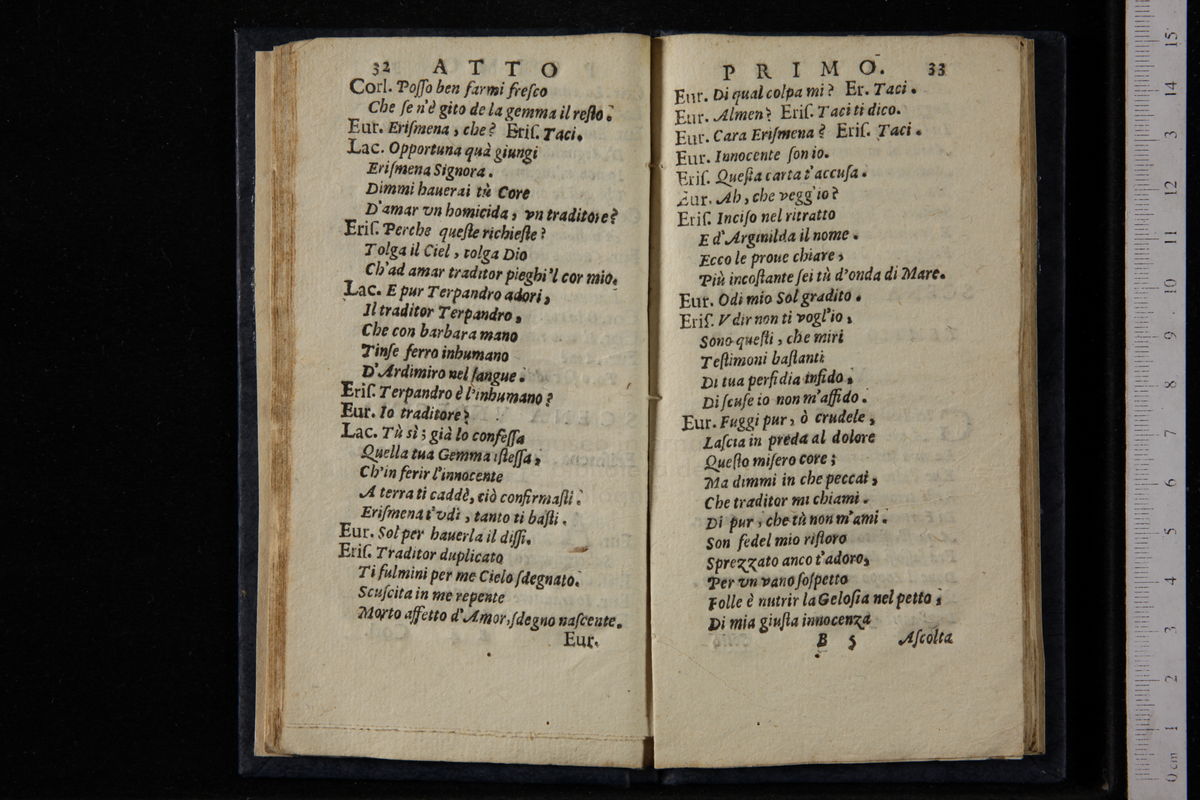 32 ATTO
Corl. Poſſo ben farmi freſco
Che ſe n'è gito de la gemma il reſto.
Eur. Eriſmena, che? Eriſ. Taci.
Lac. Opportuna quà giungi
Eriſmena Signora.
Dimmi hauerai tù Core
D'amar vn homicida, vn traditore?
Eriſ. Perche queſte richieſte?
Tolga il Ciel, tolga Dio
Ch'ad amar traditor pieghi 'l cor mio.
Lac. E pur Terpandro adori,
Il traditor Terpandro,
Che con barbara mano
Tinſe ferro inhumano
D'Ardimiro nel ſangue.
Eriſ. Terpandro è l'inhumano?
Eur. Io traditore?
Lac. Tù sì; già lo confeſſa
Quella tua Gemma iſteſſa,
Ch'in ferir l'innocente
A terra ti caddè, ciò confirmaſti.
Eriſmena t'vdì, tanto ti baſti.
Eur. Sol per hauerla il diſſi.
Eriſ. Traditor duplicato
Ti fulmini per me Cielo ſdegnato.
Scuſcita in me repente
Morto affetto d'Amor, ſdegno naſcente.
Eur.
PRIMO. 33
Eur. Di qual colpa mi? Er. Taci.
Eur. Almen? Eriſ. Taci ti dico.
Eur. Cara Eriſmena? Eriſ. Taci.
Eur. Innocente ſon io.
Eriſ. Queſta carta t'accuſa.
Eur. Ah, che vegg'io?
Eriſ. Inciſo nel ritratto
E d'Arginilda il nome.
Ecco le proue chiare,
Più incoſtante ſei tù d'onda di Mare.
Eur. Odi mio Sol gradito.
Eriſ. Vdir non ti vogl'io,
Sono queſti, che miri
Teſtimoni baſtanti
Di tua perfidia infido,
Di ſcuſe io non m'affido.
Eur. Fuggi pur, ò crudele,
Laſcia in preda al dolore
Queſto miſero core;
Ma dimmi in che peccai,
Che traditor mi chiami.
Di pur, che tù non m'ami.
Son fedel mio riſtoro
Sprezzato anco t'adoro,
Per vn vano ſoſpetto
Folle è nutrir la Geloſia nel petto,
Di mia giuſta innocenza
B 5 Aſcolta